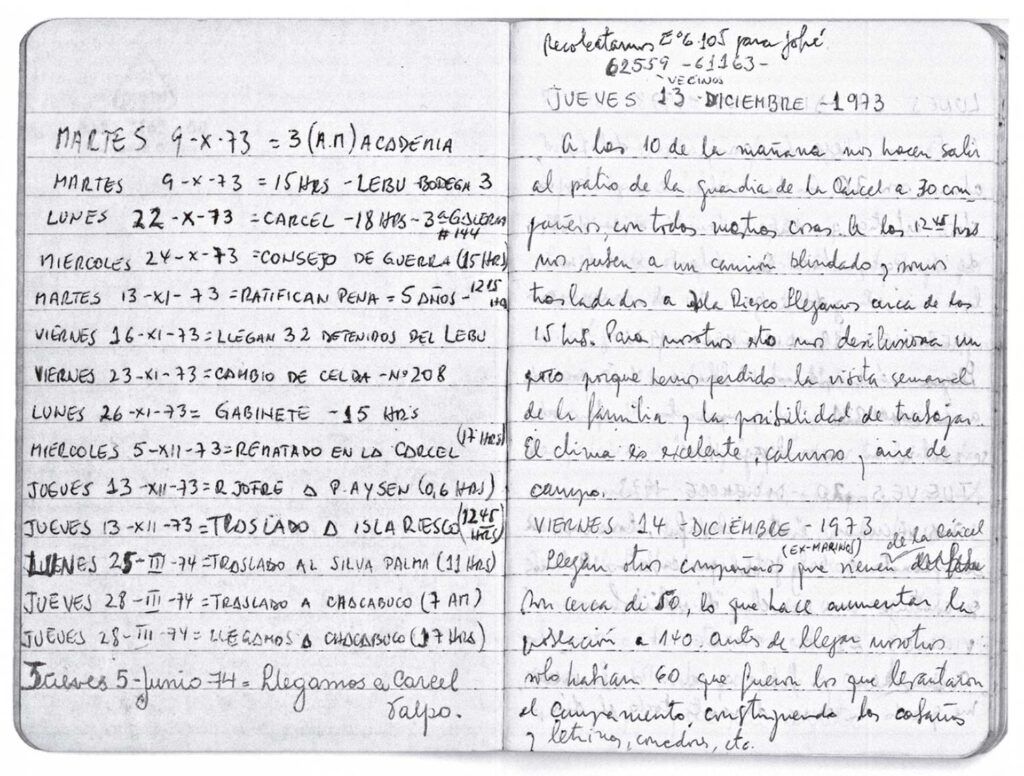 MARTES 9-X-73 = 3 (A.M) ACADEMIA
MARTES 9-X-73 = 15 HRS - LEBU - BODEGA 3
LUNES 22-X-73 = CARCEL - 18 HRS - 3ª GALERIA
# 144
MIERCOLES 24-X-73 = CONSEJO DE GUERRA (15 HRS)
MARTES 13-XI-73 = RATIFICAN PENA = 5 AÑOS - 1215 HRS
VIERNES 16-XI-73 = LLEGAN 32 DETENIDOS DEL LEBU
VIERNES 23-XI-73 = CAMBIO DE CELDA - Nº 208
LUNES 26-XI-73 = GABINETE - 15 HRS
MIERCOLES 5-XII-73 = REMATADO EN LA CARCEL (17 HRS)
JUEVES 13-XII-73 = R. JOFRE A P. AYSEN (0,6 HRS)
JUEVES 13-XII-73 = TRASLADO A ISLA RIESCO (1245 HRS)
LUNES 25-III-74 = TRASLADO AL SILVA PALMA (11 HRS)
JUEVES 28-III-74 = TRASLADO A CHACABUCO (7 AM)
JUEVES 28-III-74 = LLEGAMOS A CHACABUCO (17 HRS)
Jueves 5-Junio 74 = Llegamos a Carcel
Valpo.
Recolectamos Eº 6.105 para Jofré
62559 - 61163 -
VECINOS
JUEVES 13 - DICIEMBRE - 1973
A las 10 de la mañana nos hacen salir
al patio de la guardia de la Cárcel a 30 com
pañeros, con todas nuestras cosas. A las 1245 hrs
nos suben a un camión blindado y somos
trasladados a Isla Riesco. Llegamos cerca de las
15 hrs. Para nosotros esto nos desilusiona un
poco porque hemos perdido la visita semanal
de la familia y la posibilidad de trabajar.
El clima es excelente, caluroso y aire de
campo.
VIERNES - 14 - DICIEMBRE - 1973
(EX-MARINOS) de la Cárcel
Llegan otros compañeros que vienen
Son cerca de 50, lo que hace aumentar la
población a 140. antes de llegar nosotros
solo habían 60 que fueron los que levantaron
el campamento, construyendo las cabañas
y letrinas, comedores, etc.